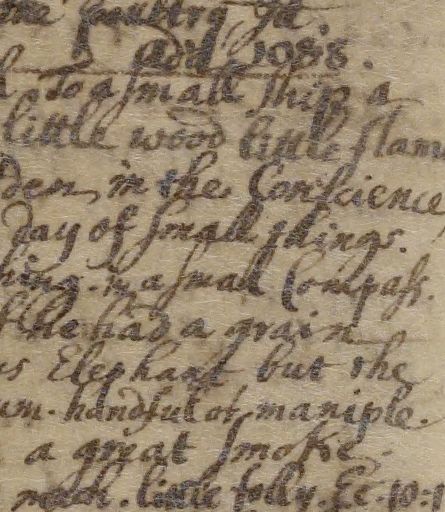 poultry
1088.
To a small ship a
little wood little flam
den in the Conscience
day of small things.
hing. in a small Compass.
he had a grain
us Elephant but the
um. handful or maniple.
a great smoke.
much. little folly. Ec. 10:1